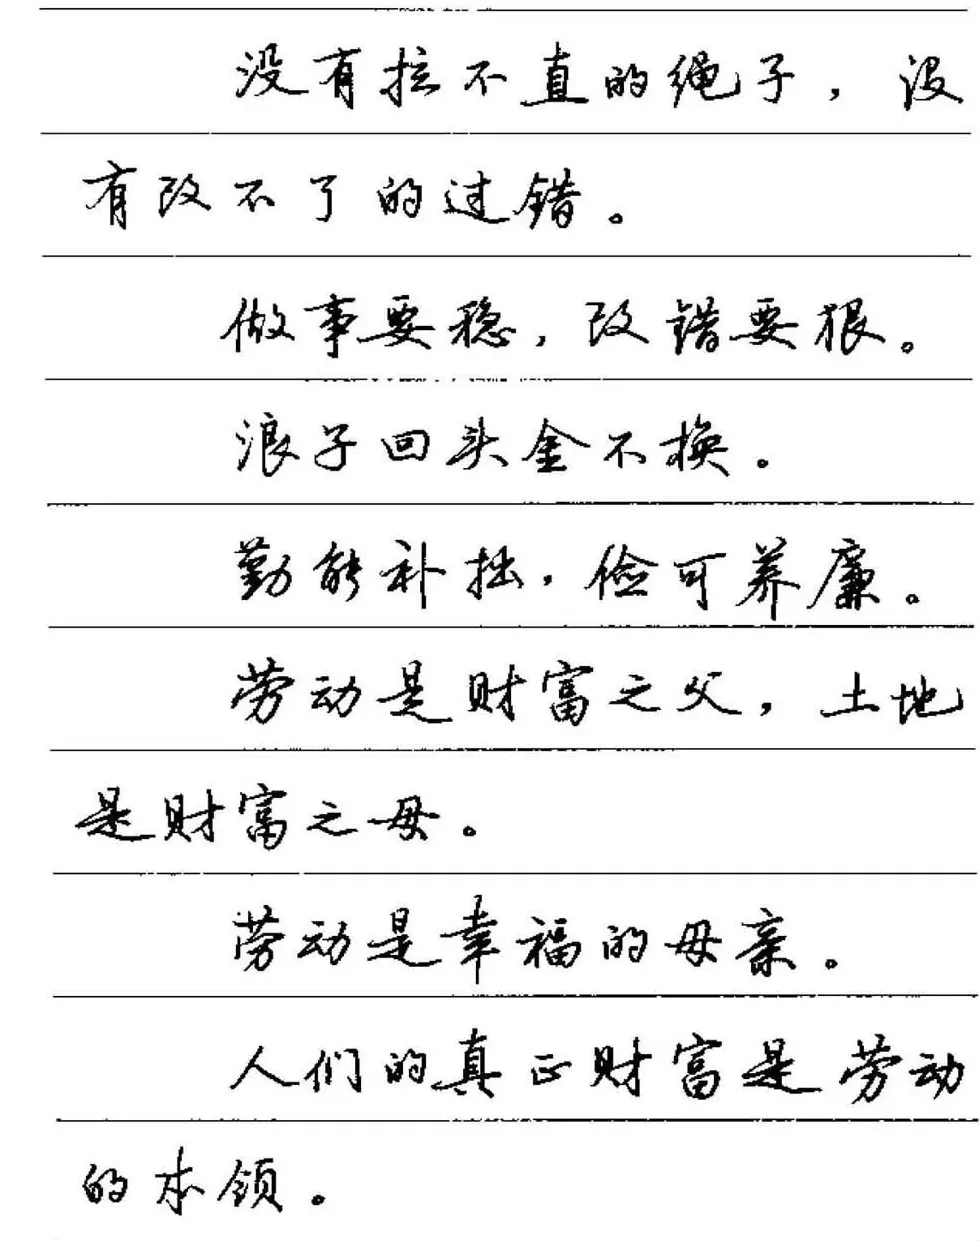 没有拉不直的绳子，没
有改不了的过错。
做事要稳，改错要狠。
浪子回头金不换。
勤能补拙，俭可养廉。
劳动是财富之父，土地
是财富之母。
劳动是幸福的母亲。
人们的真正财富是劳动
的本领。